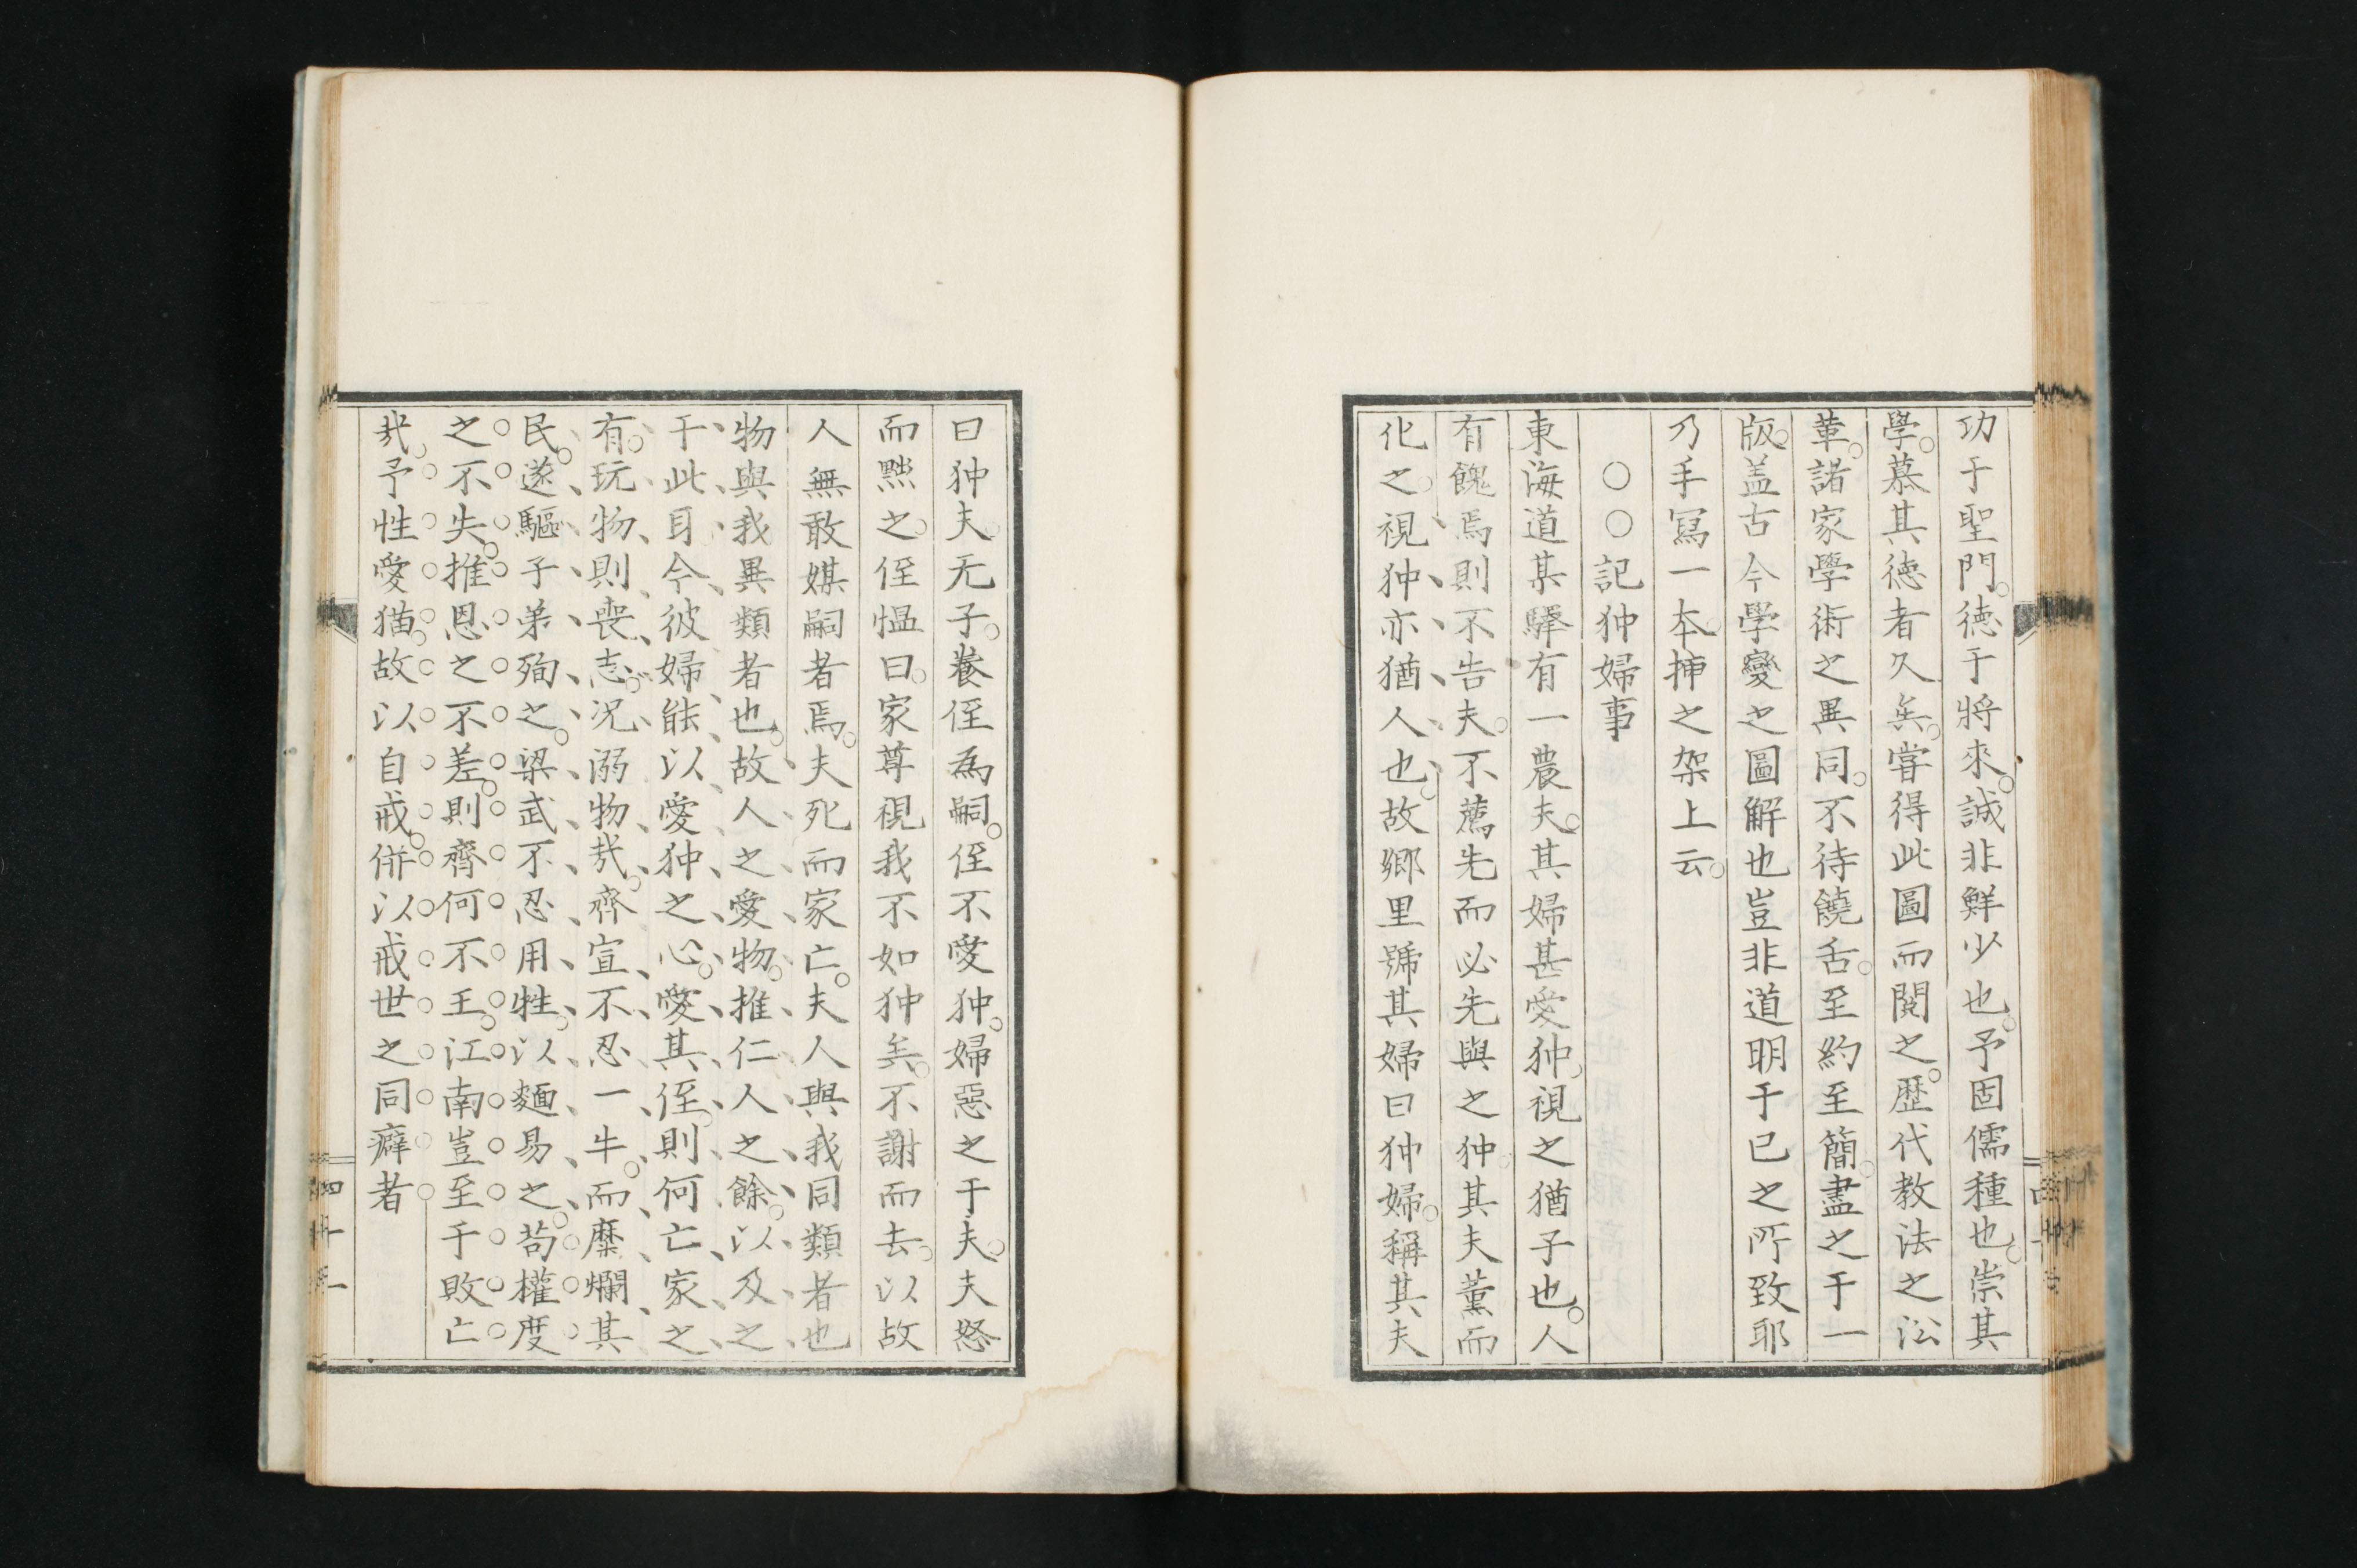 功于聖門。徳于將來。誠非鮮少也。予固儒種也。崇其
學。慕其徳者久矣。嘗得此圖而閱之。歴代教法之㳂
革。諸家學術之異同。不待饒舌。至約至簡。盡之于一
版。盖古今學變之圖解也豈非道明于已之所致耶
乃手冩一本。挿之架上云。
○○記狆婦事
東海道某驛有一農夫。其婦甚愛狆。視之猶子也。人
有餽焉則不告夫。不薦先而必先與之狆。其夫薰而
化之。視狆亦猶人也。故鄉里號其婦曰狆婦。稱其夫
曰狆夫。无子。養侄為嗣。侄不愛狆。婦惡之于夫。夫怒
而黜之。侄慍曰。家尊視我不如狆矣。不謝而去。以故
人無敢媒嗣者焉。夫死而家亡。夫人與我同類者也
物與我異類者也。故人之愛物。推仁人之餘。以及之
于此耳今彼婦能以愛狆之心。愛其侄。則何亡家之
有。玩物則喪志。况溺物㢤。齊宣不忍一牛。而糜爛其
民。遂驅子弟殉之。梁武不忍用牲。以麵易之。苟權度
之不失。推恩之不差。則齊何不王。江南豈至于敗亡
㢤。予性愛猫。故以自戒。併以戒世之同癖者
四十一